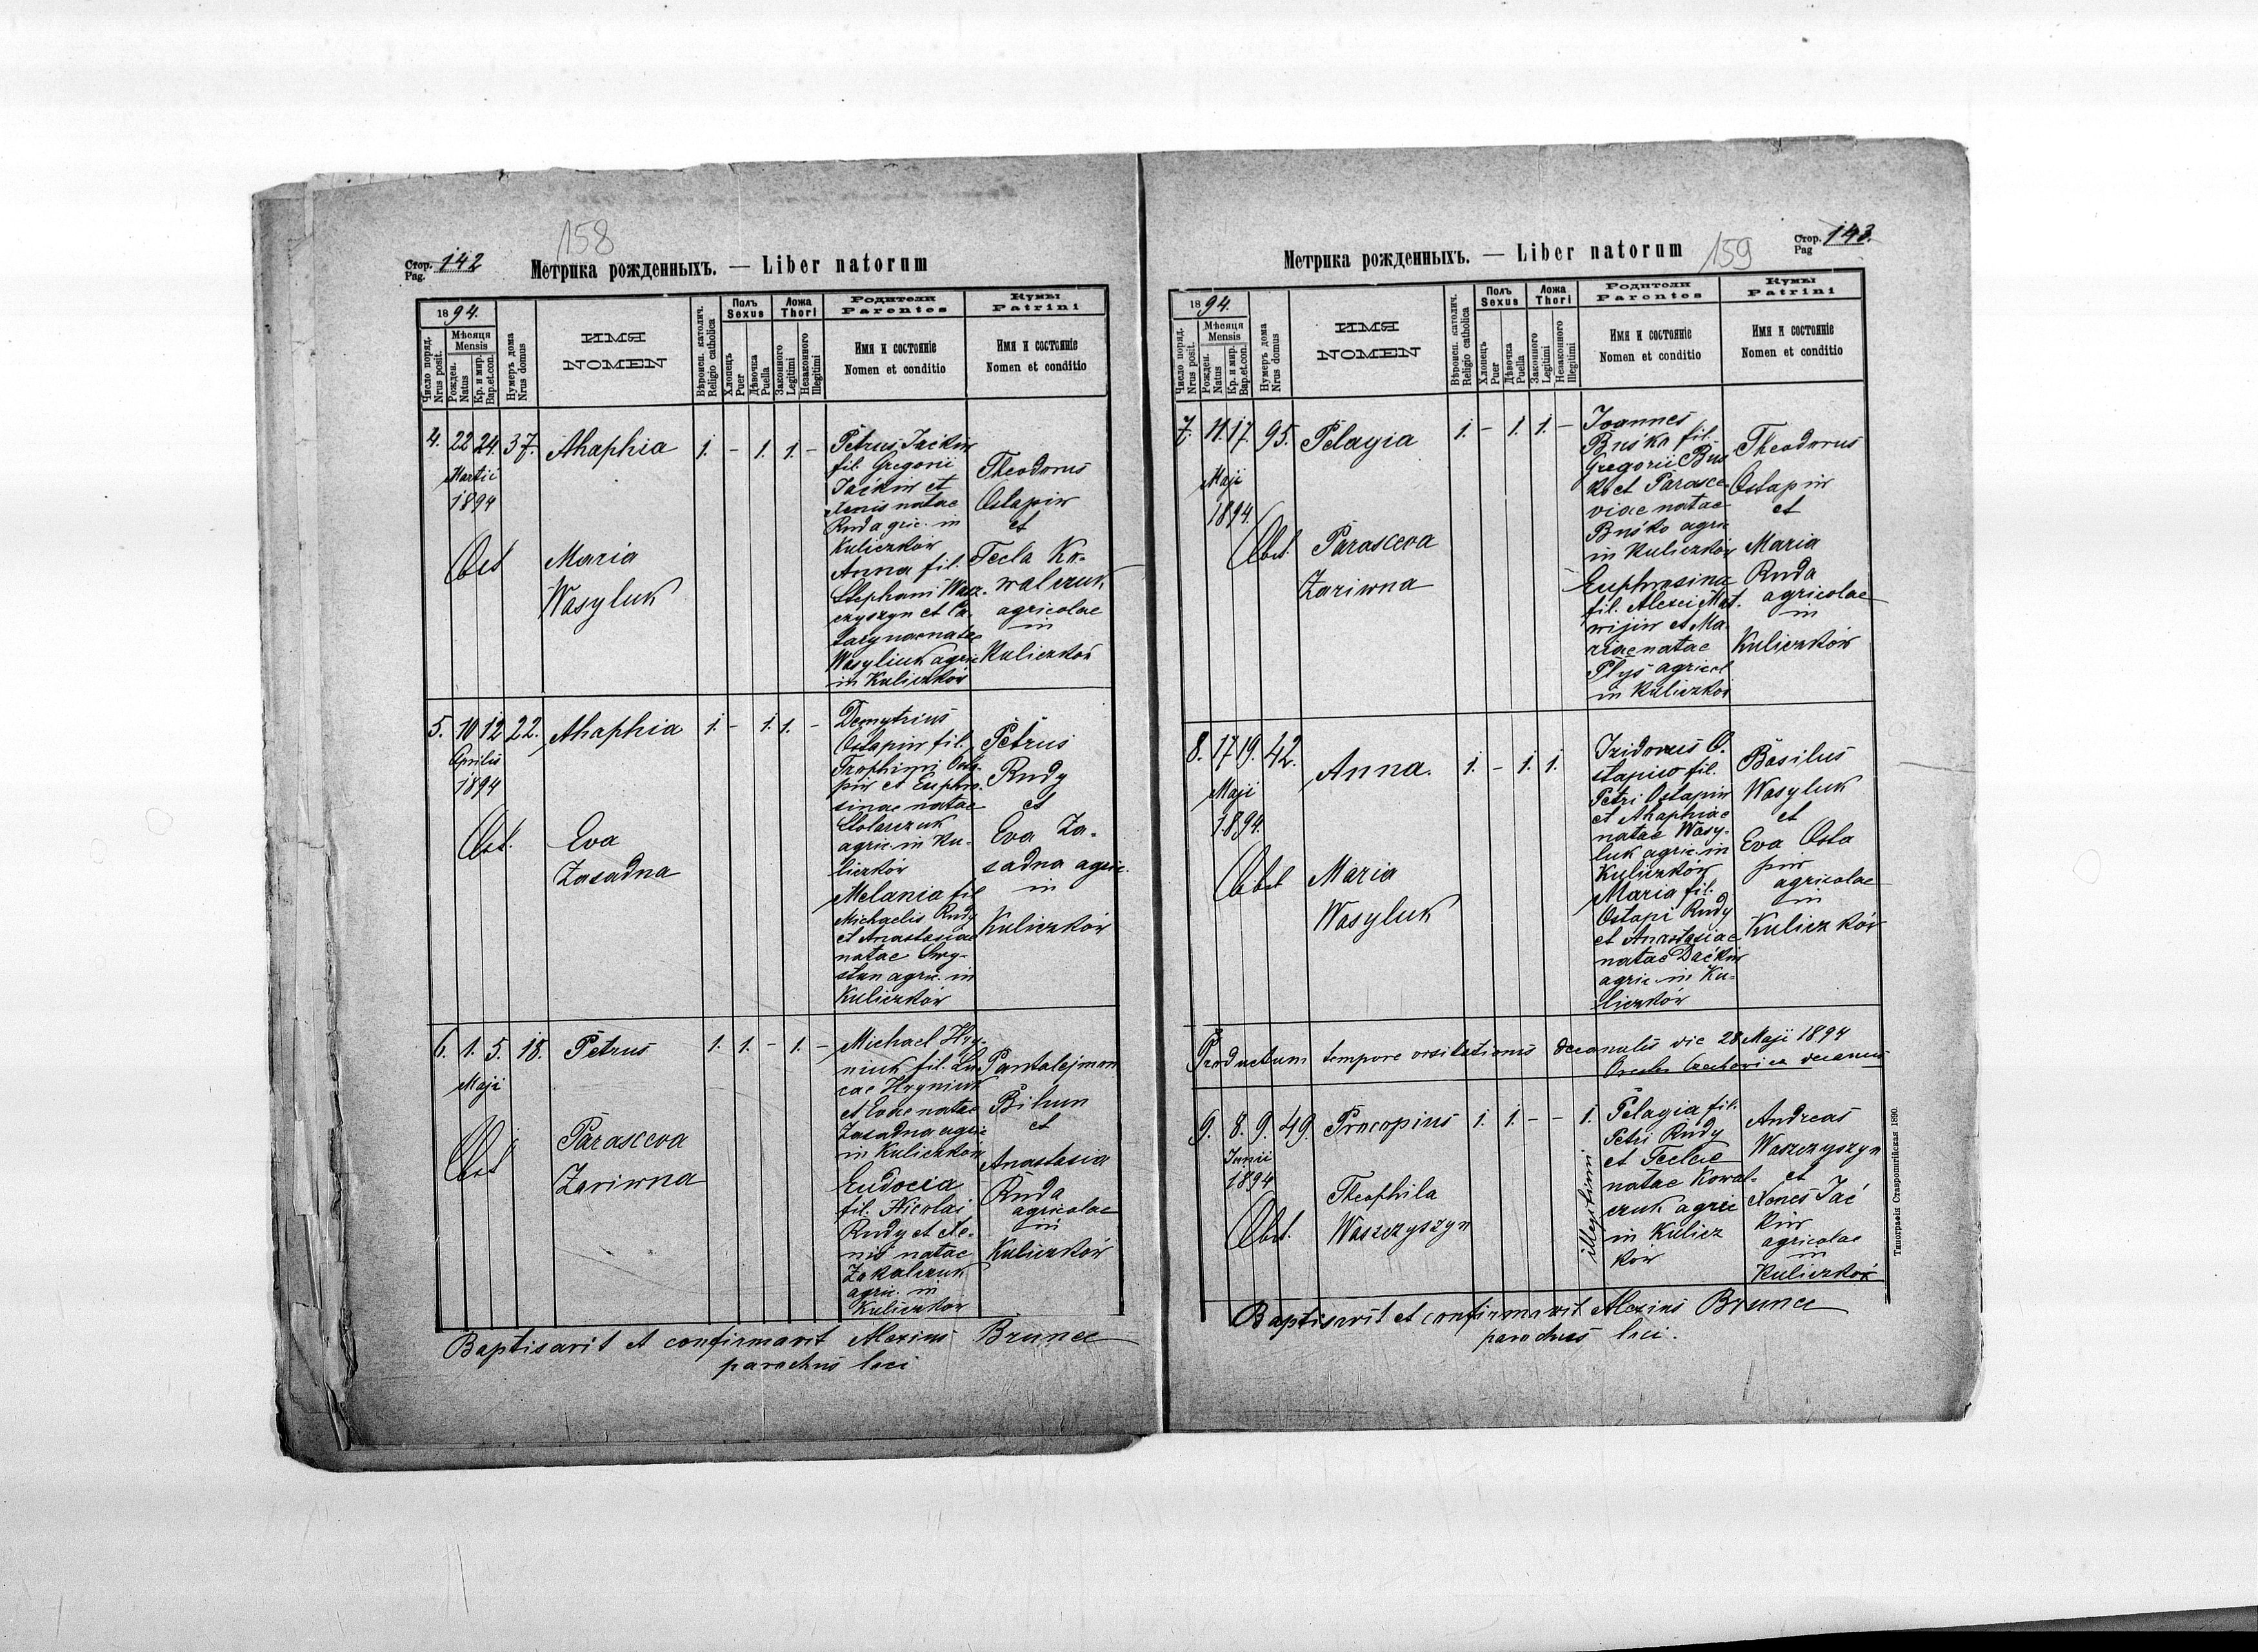 158
Стор. 142
Pag.
Метрика рожденныхъ. — Liber natorum
1894.
Число поряд.
Nrus posit.
Мѣсяця
Mensis
Рожден.
Natus
Кр. и мир.
Bap.et.con.
Нумеръ дома
Nrus domus
ИМЯ
NOMEN
Вѣроисп. католич.
Religio catholica
Полъ
Sexus
Хлопецъ
Puer
Дѣвочка
Puella
Ложа
Thori
Законного
Legitimi
Незаконного
Illegitimi
Родители
Parentes
Имя и состояніе
Nomen et conditio
Кумы
Patrini
Имя и состояніе
Nomen et conditio
4. 22 24. 37. Ahaphia 1. - 1. 1. -
Martii
1894
Obst Maria
Wasyluk
Petrus Jackiw
fil. Gregorii
Jackiw et
Xenis natae
Ruda gric. in
Kuliczków
Anna fil.
Stephani Wasz-
czyszyn et Ca-
tarynae natae
Wasyliuk agric
in Kuliczków
Theodorus
Ostapiw
et
Tecla Ko-
walczuk
agricolae
in
Kuliczków
5. 10 12 22. Ahaphia 1. - 1. 1. -
Aprilis
1894
Obst. Eva
Zasadna
Demytrius
Ostapiw fil.
Trophimi Osta-
piw et Euphro-
sinae natae
Stolarczuk
agric. in Ku-
liczków
Melania fil
Michaelis Rudy
et Anastasiae
natae
agric. in
Kuliczków
Petrus
Rudy
et
Eva Za-
sadna agric.
in
Kuliczków
6. 1. 5. 18. Petrus 1. 1. - 1. -
Maji
Obst Parasceva
Zariwna
Michael Hry-
niuk fil. Lu
cae Hryniuk
et Evae natae
Zasadna agric
in Kuliczków
Eudocia
fil. Nicolai
Rudy et Xe-
nis natae
Zakalczuk
agric. in
Kuliczków
Pantalejmon
Bihun
et
Anastasia
Ruda
agricolae
in
Kuliczków
Baptisavit et confirmavit Alexius Brunec
parochus loci
Метрика рожденныхъ. — Liber natorum
159
Стор. 143.
Pag
1894.
Число поряд.
Nrus posit.
Мѣсяця
Mensis
Рожден.
Natus
Кр. и мир.
Bap.et.con.
Нумеръ дома
Nrus domus
ИМЯ
NOMEN
Вѣроисп. католич.
Religio catholica
Полъ
Sexus
Хлопецъ
Puer
Дѣвочка
Puella
Ложа
Thori
Законного
Legitimi
Незаконного
Illegitimi
Родители
Parentes
Имя и состояніе
Nomen et conditio
Кумы
Patrini
Имя и состояніе
Nomen et conditio
7. 11. 17. 95. Pelagia 1. - 1. 1. -
Maji
1894.
Obst. Parasceva
Zariwna
Joannes
Buśko fil.
Gregorii Buś
ko et Parasce-
viae natae
Buśko agric
in Kuliczków
Euphrosina
fil. Alexei Mat-
wijiw et Ma-
riae natae
Płyś agricol
in Kuliczków
Theodorus
Ostapiw
et
Maria
Ruda
agricolae
in
Kuliczków
8. 17 19. 42. Anna. 1. - 1. 1.
Maji
1894.
Obst Maria
Wasyluk
Izidorus O-
stapiw fil.
Petri Ostapiw
et Ahaphiae
natae Wasy-
luk agric. in
Kuliczków
Maria fil.
Ostapi Rudy
et Anastasiae
natae Dackiw
agric. in Ku-
liczków
Basilus
Wasyluk
et
Eva Osta
piw
agricolae
in
Kuliczków
Productum tempore visitationis decanalis die 28 Maji 1894
decanus
9. 8. 9. 49. Procopius 1. 1. - - 1.
Junii
1894
Obst. Theophila
Waszczyszyn
illegitimi
Pelagia fil.
Petri Rudy
et Teclae
natae Kowal-
czuk agric
in Kulicz
ków
Andreas
Waszczyszyn
et
Xenes Jać
kiw
agricolae
in
Kuliczków
Baptisavit et confirmavit Alexius Brunec
parochus loci.
Типографія Ставропигійская 1890.